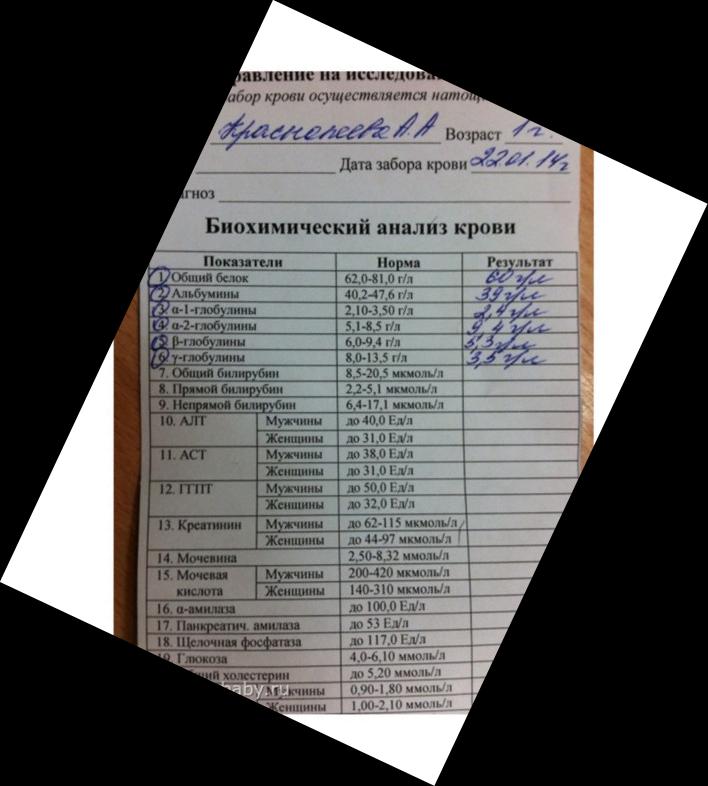 равление на исследова
абор крови осуществляется натощ
Краснопеева А.А Возраст 1 г.
Дата забора крови 22.01.14г
гноз
Биохимический анализ крови
Показатели Норма Результат
1. Общий белок 62,0-81,0 г/л 60 г/л
2. Альбумины 40,2-47,6 г/л 39 г/л
3. α-1-глобулины 2,10-3,50 г/л 2,4 г/л
4. α-2-глобулины 5,1-8,5 г/л 9,4 г/л
5. β-глобулины 6,0-9,4 г/л 5,3 г/л
6. γ-глобулины 8,0-13,5 г/л 3,5 г/л
7. Общий билирубин 8,5-20,5 мкмоль/л
8. Прямой билирубин 2,2-5,1 мкмоль/л
9. Непрямой билирубин 6,4-17,1 мкмоль/л
10. АЛТ Мужчины до 40,0 Ед/л
Женщины до 31,0 Ед/л
11. АСТ Мужчины до 38,0 Ед/л
Женщины до 31,0 Ед/л
12. ГГТП Мужчины до 50,0 Ед/л
Женщины до 32,0 Ед/л
13. Креатинин Мужчины до 62-115 мкмоль/л
Женщины до 44-97 мкмоль/л
14. Мочевина 2,50-8,32 ммоль/л
15. Мочевая Мужчины 200-420 мкмоль/л
кислота Женщины 140-310 мкмоль/л
16. α-амилаза до 100,0 Ед/л
17. Панкреатич. амилаза до 53 Ед/л
18. Щелочная фосфатаза до 117,0 Ед/л
19. Глюкоза 4,0-6,10 ммоль/л
щий холестерин до 5,20 ммоль/л
baby.ru Мужчины 0,90-1,80 ммоль/л
Женщины 1,00-2,10 ммоль/л